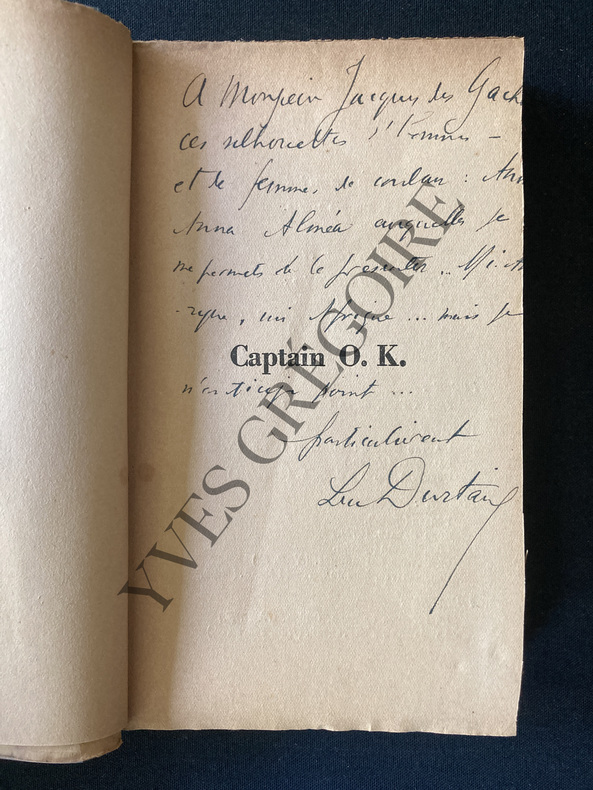 A Monsieur Jacques des Gach
ces silhouettes d'hommes –
et de femmes de couleur : Ann
Anna Alméa auxquelles je
me permets de le présenter .. Ni A
, ni Afrique ... mais je
Captain O. K.
n'anticipe point ...
particulièrement
Luc Durtain
YVES GRÉGOIRE